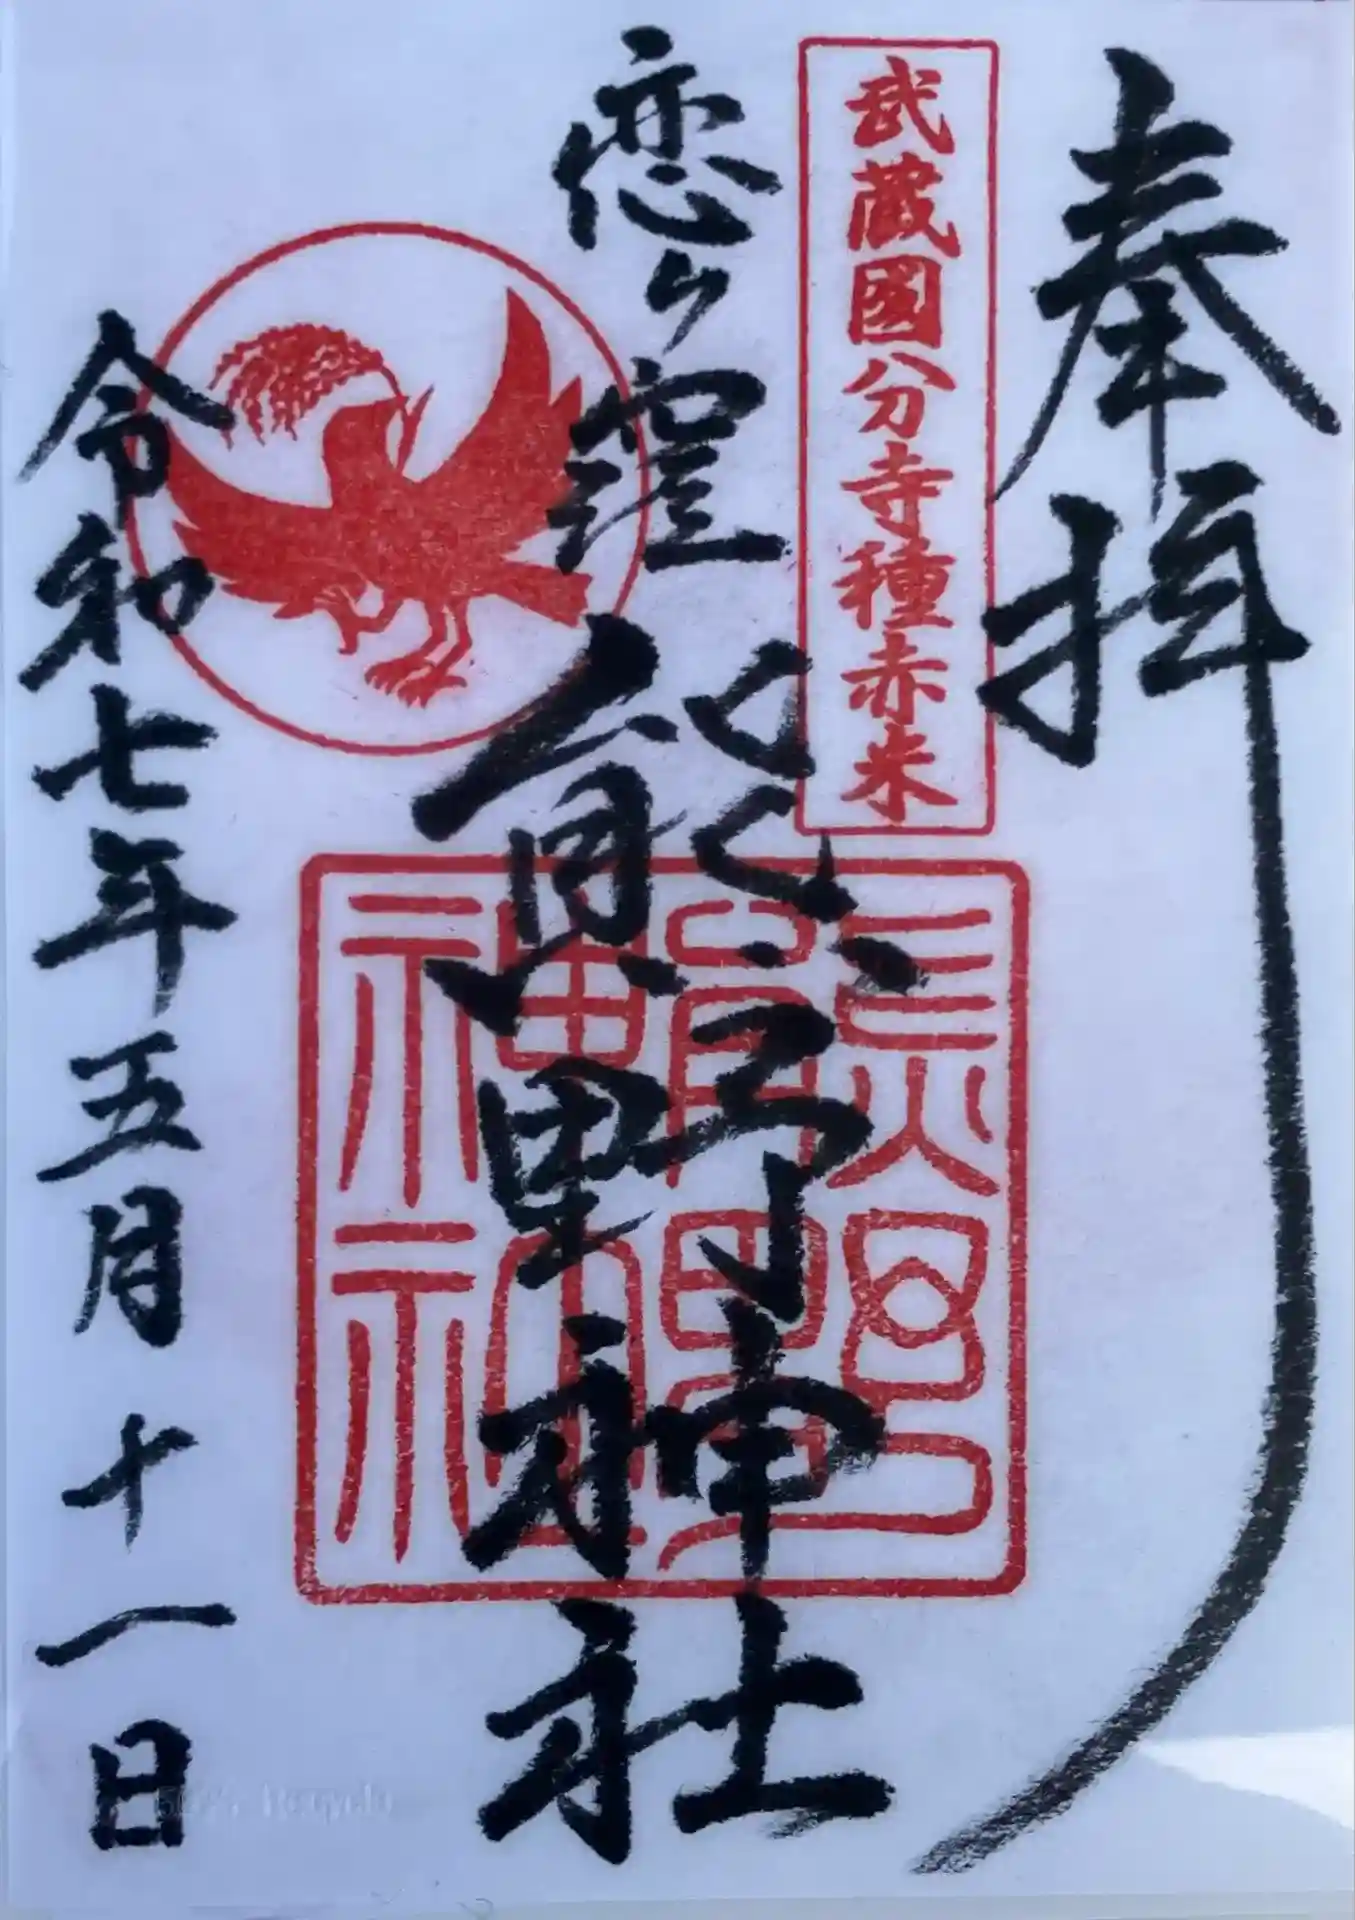 奉拝
武蔵國分寺種赤米
恋ヶ窪
熊野神社
令和七年五月十一日